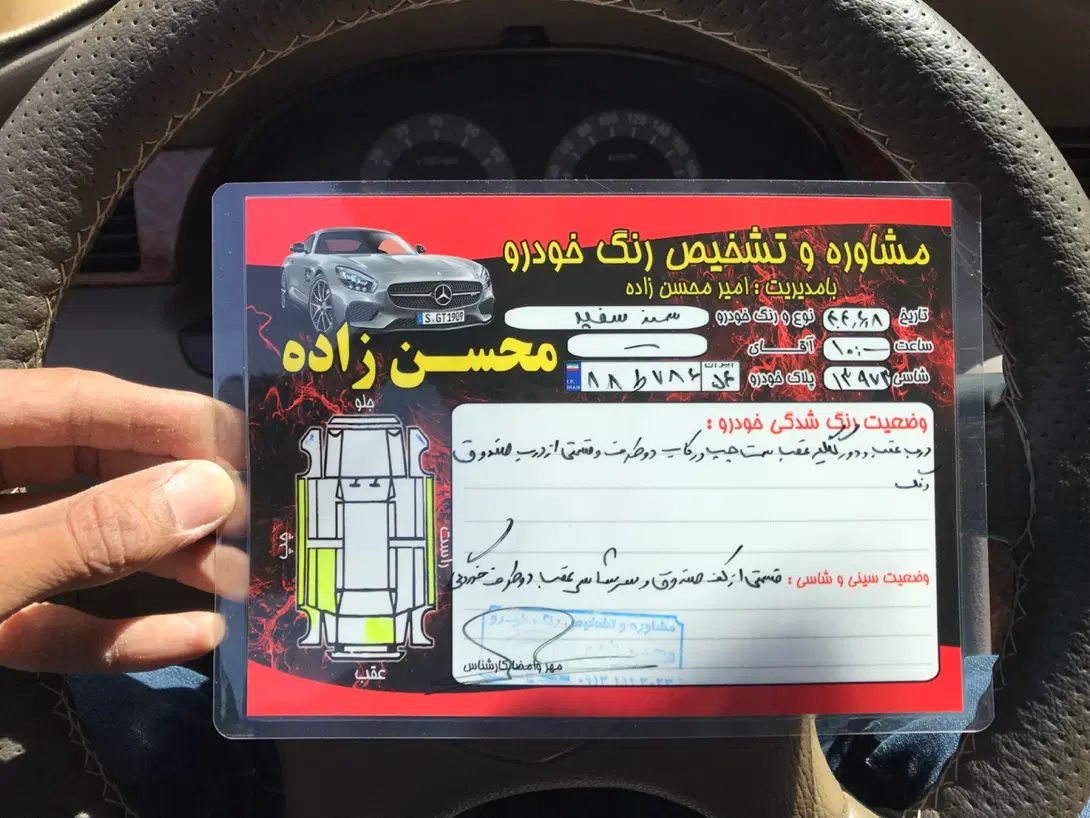 مشاوره و تشخیص رنگ خودرو
بامدیریت : امیر محسن زاده
محسن زاده
تاریخ نوع و رنگ خودرو سمند سفید
ساعت ۱۰:۰۰ آقــای
شاسی پلاک خودرو ۸۸ ط ۷۸۶ ایران
I.R. IRAN
S·GT1909
جلو
چپ
راست
عقب
وضعیت رنگ شدگی خودرو :
درب عقب و دور گلگیر عقب سمت چپ و رکاب دو طرف و قسمتی از درب صندوق
رنگ
وضعیت سینی و شاسی : قسمتی از کف صندوق و سر شاسی عقب دو طرف خوردگی
مشاوره و تشخیص رنگ خودرو
مهر و امضا کارشناس